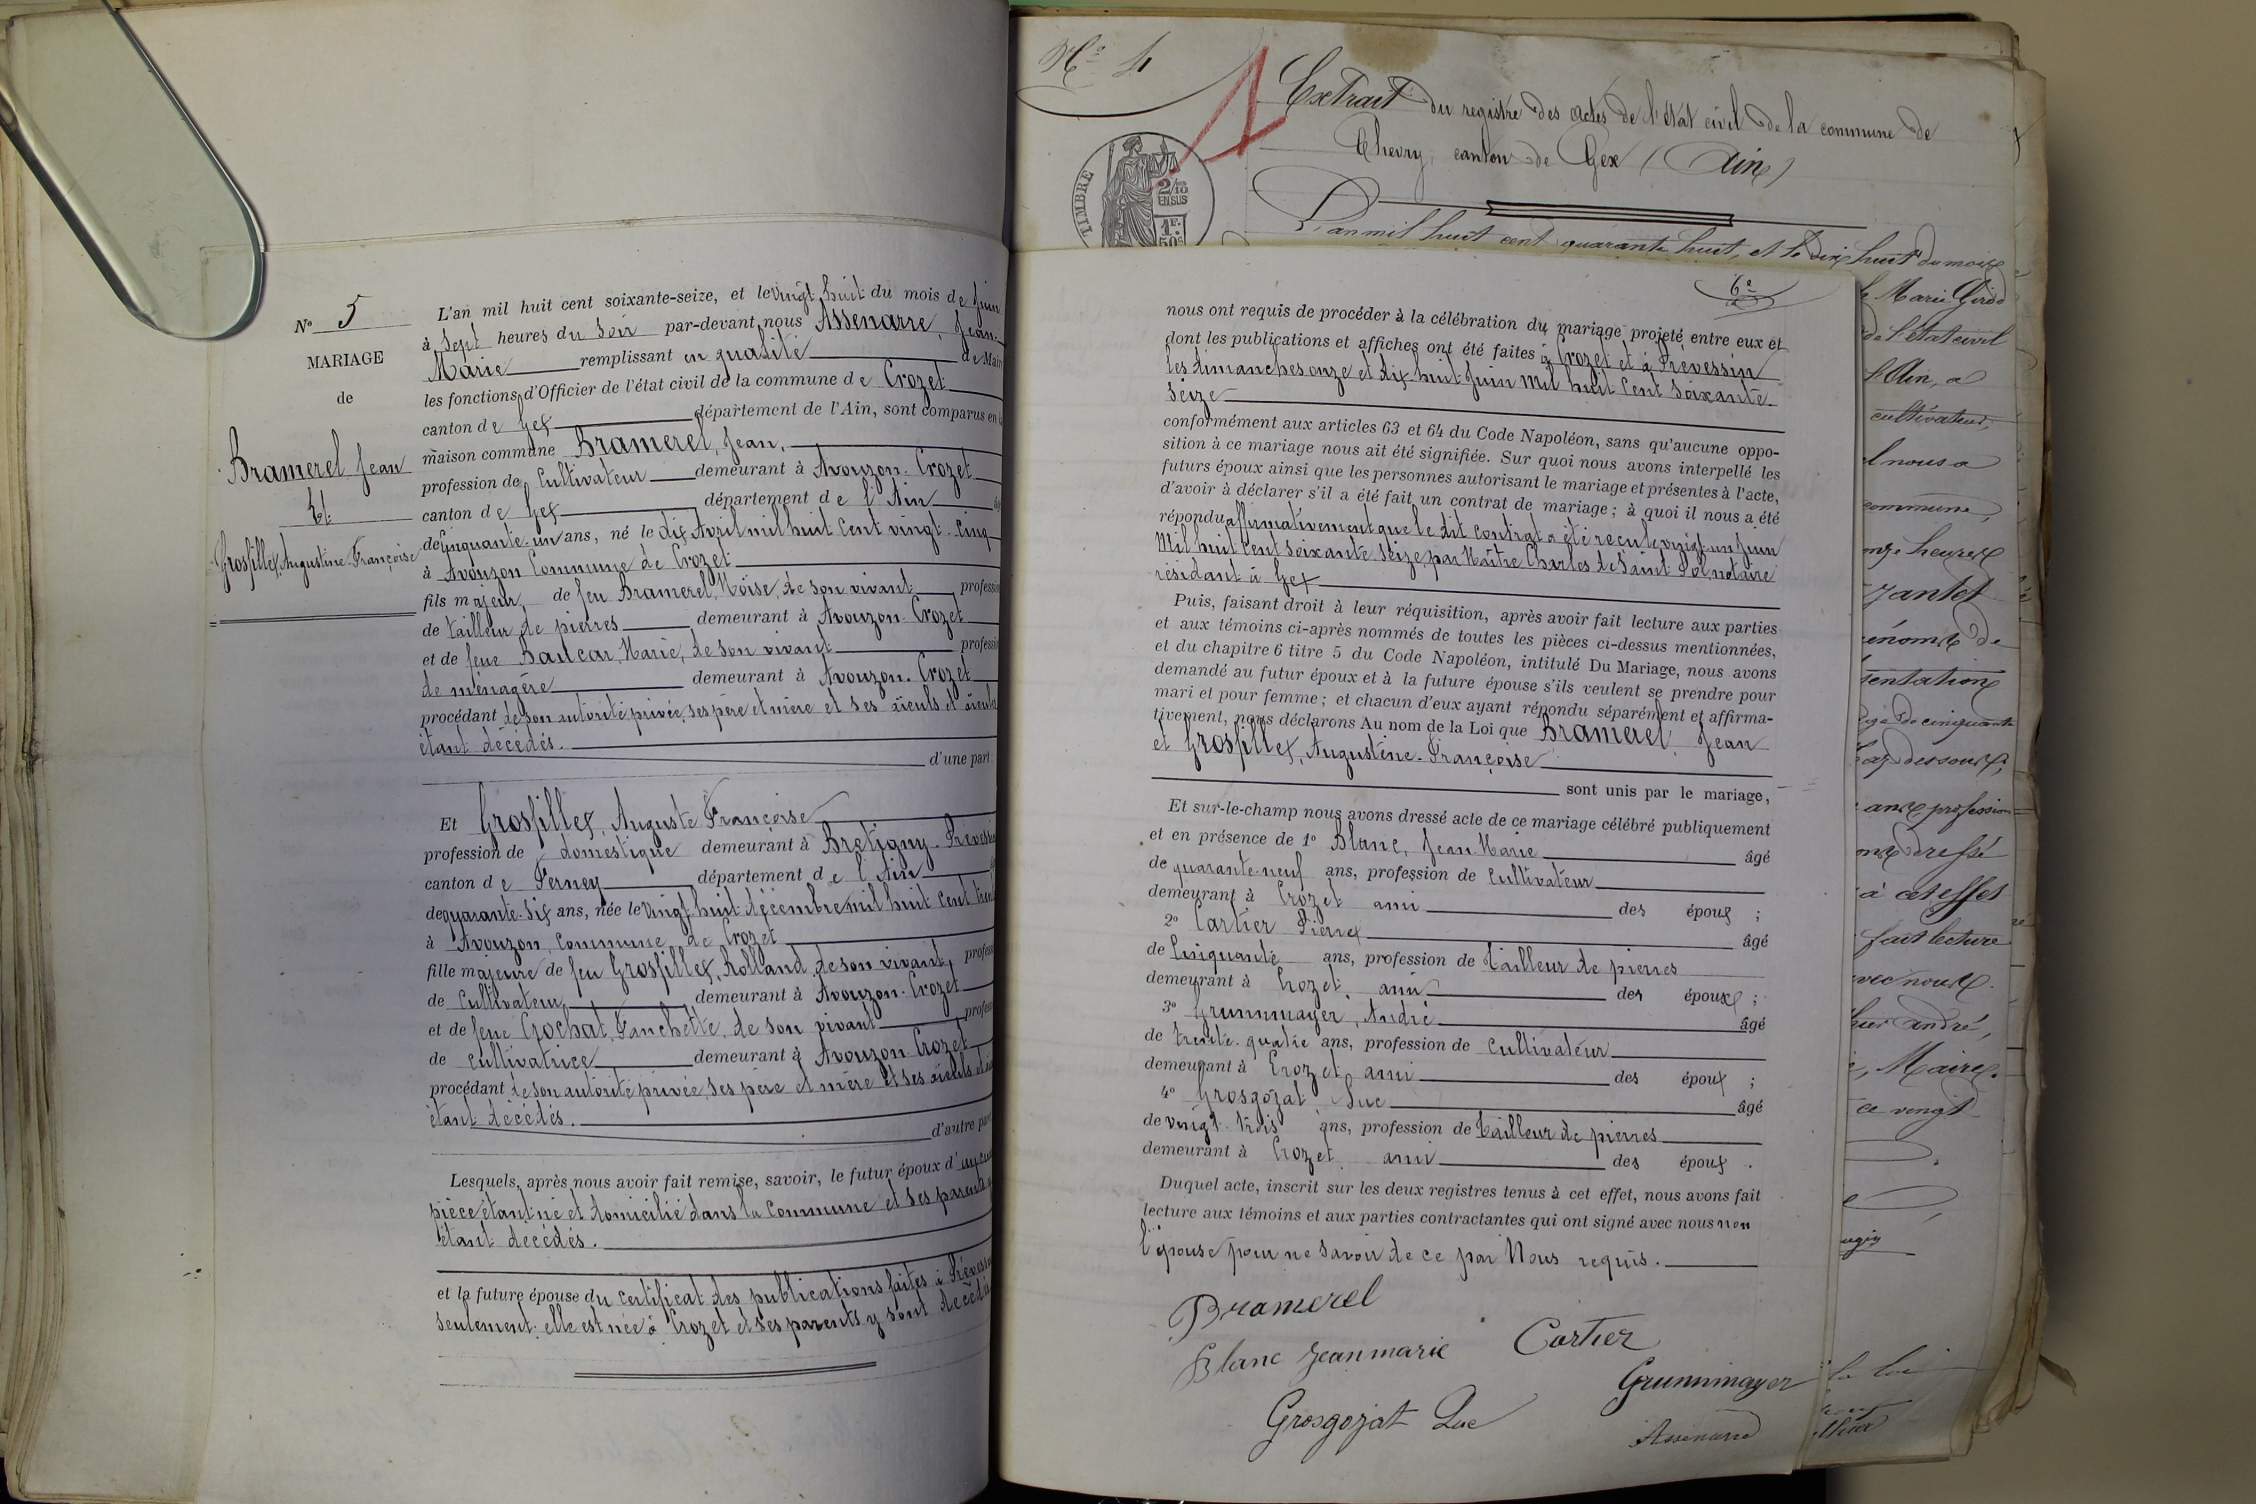 N° 5
MARIAGE
de
Bramerel Jean
Et
Grosfillex, Augustine Françoise
L'an mil huit cent soixante-seize, et le vingt huit du mois de Juin
à Sept heures du Soir par-devant nous Assenarre, Jean-
Marie remplissant en qualité de Maire
les fonctions d'Officier de l'état civil de la commune de Crozet
canton de Gex département de l'Ain, sont comparus en la
maison commune Bramerel, Jean,
profession de Cultivateur demeurant à Avouzon-Crozet
canton de Gex département de l'Ain âgé
de Cinquante-un ans, né le dix Avril mil huit cent vingt-cinq
à Avouzon Commune de Crozet
fils majeur de feu Bramerel, Moïse, de son vivant profession
de tailleur de pierres demeurant à Avouzon-Crozet
et de feue Baulcar, Marie, de son vivant profession
de ménagère demeurant à Avouzon-Crozet
procédant de son autorité privée, ses père et mère et ses aïeuls et aïeules
étant décédés.
d'une part.
Et Grosfillex, Auguste Françoise
profession de domestique demeurant à Bretigny-Prevessin
canton de Ferney département de l'Ain
de quarante-six ans, née le vingt huit décembre mil huit cent
à Avouzon, commune de Crozet
fille majeure de feu Grosfillex, Rolland, de son vivant, profession
de cultivateur demeurant à Avouzon-Crozet
et de feue Crochat, Fanchette, de son vivant profession
de cultivatrice demeurant à Avouzon-Crozet
procédant de son autorité privée, ses père et mère et ses aïeuls et
étant décédés.
d'autre part
Lesquels, après nous avoir fait remise, savoir, le futur époux d'aucune
pièce étant né et domicilié dans la Commune et ses parents y
étant décédés.
et la future épouse du certificat des publications faites à Prévessin
seulement elle est née à Crozet et ses parents y sont décédés
N° 4
Extrait du registre des actes de l'état civil de la commune de
Chevry, canton de Gex (Ain)
TIMBRE
2/10
EN SUS
1F.
50c
L'an mil huit cent quarante huit, et le dix huit du mois
6e
nous ont requis de procéder à la célébration du mariage projeté entre eux et
dont les publications et affiches ont été faites à Crozet et à Prévessin
les dimanches onze et dix-huit Juin mil huit cent soixante-
seize
conformément aux articles 63 et 64 du Code Napoléon, sans qu'aucune oppo-
sition à ce mariage nous ait été signifiée. Sur quoi nous avons interpellé les
futurs époux ainsi que les personnes autorisant le mariage et présentes à l'acte,
d'avoir à déclarer s'il a été fait un contrat de mariage; à quoi il nous a été
répondu affirmativement que le dit contrat a été reçu le vingt-un Juin
Mil huit cent soixante seize par Maître Charles de Saint Pol, notaire
résidant à Gex
Puis, faisant droit à leur réquisition, après avoir fait lecture aux parties
et aux témoins ci-après nommés de toutes les pièces ci-dessus mentionnées,
et du chapitre 6 titre 5 du Code Napoléon, intitulé Du Mariage, nous avons
demandé au futur époux et à la future épouse s'ils veulent se prendre pour
mari et pour femme; et chacun d'eux ayant répondu séparément et affirma-
tivement, nous déclarons Au nom de la Loi que Bramerel, Jean
et Grosfillex, Augustine-Françoise
sont unis par le mariage,
Et sur-le-champ nous avons dressé acte de ce mariage célébré publiquement
et en présence de 1° Blanc, Jean Marie âgé
de quarante-neuf ans, profession de cultivateur
demeurant à Crozet ami des époux ;
2° Cartier Pierre âgé
de Cinquante ans, profession de tailleur de pierres
demeurant à Crozet, ami des époux ;
3° Grunnmayer, André âgé
de trente-quatre ans, profession de cultivateur
demeurant à Crozet, ami des époux ;
4° Grosgozat, Luc âgé
de vingt-trois ans, profession de tailleur de pierres
demeurant à Crozet ami des époux .
Duquel acte, inscrit sur les deux registres tenus à cet effet, nous avons fait
lecture aux témoins et aux parties contractantes qui ont signé avec nous non
l'épouse pour ne savoir de ce par Nous requis.
Bramerel
Blanc jeanmarie Cartier
Grunnmayer
Grosgozat Luc
Assenarre
Marie Girod
de l'état civil
l'Ain, a
cultivateur,
nous a
commune,
onze heures
de
sentation
de cinquante
dessous,
ans profession
dressé
à cet effet
fait lecture
avec nous.
andré,
Maire.
ce vingt
la loi